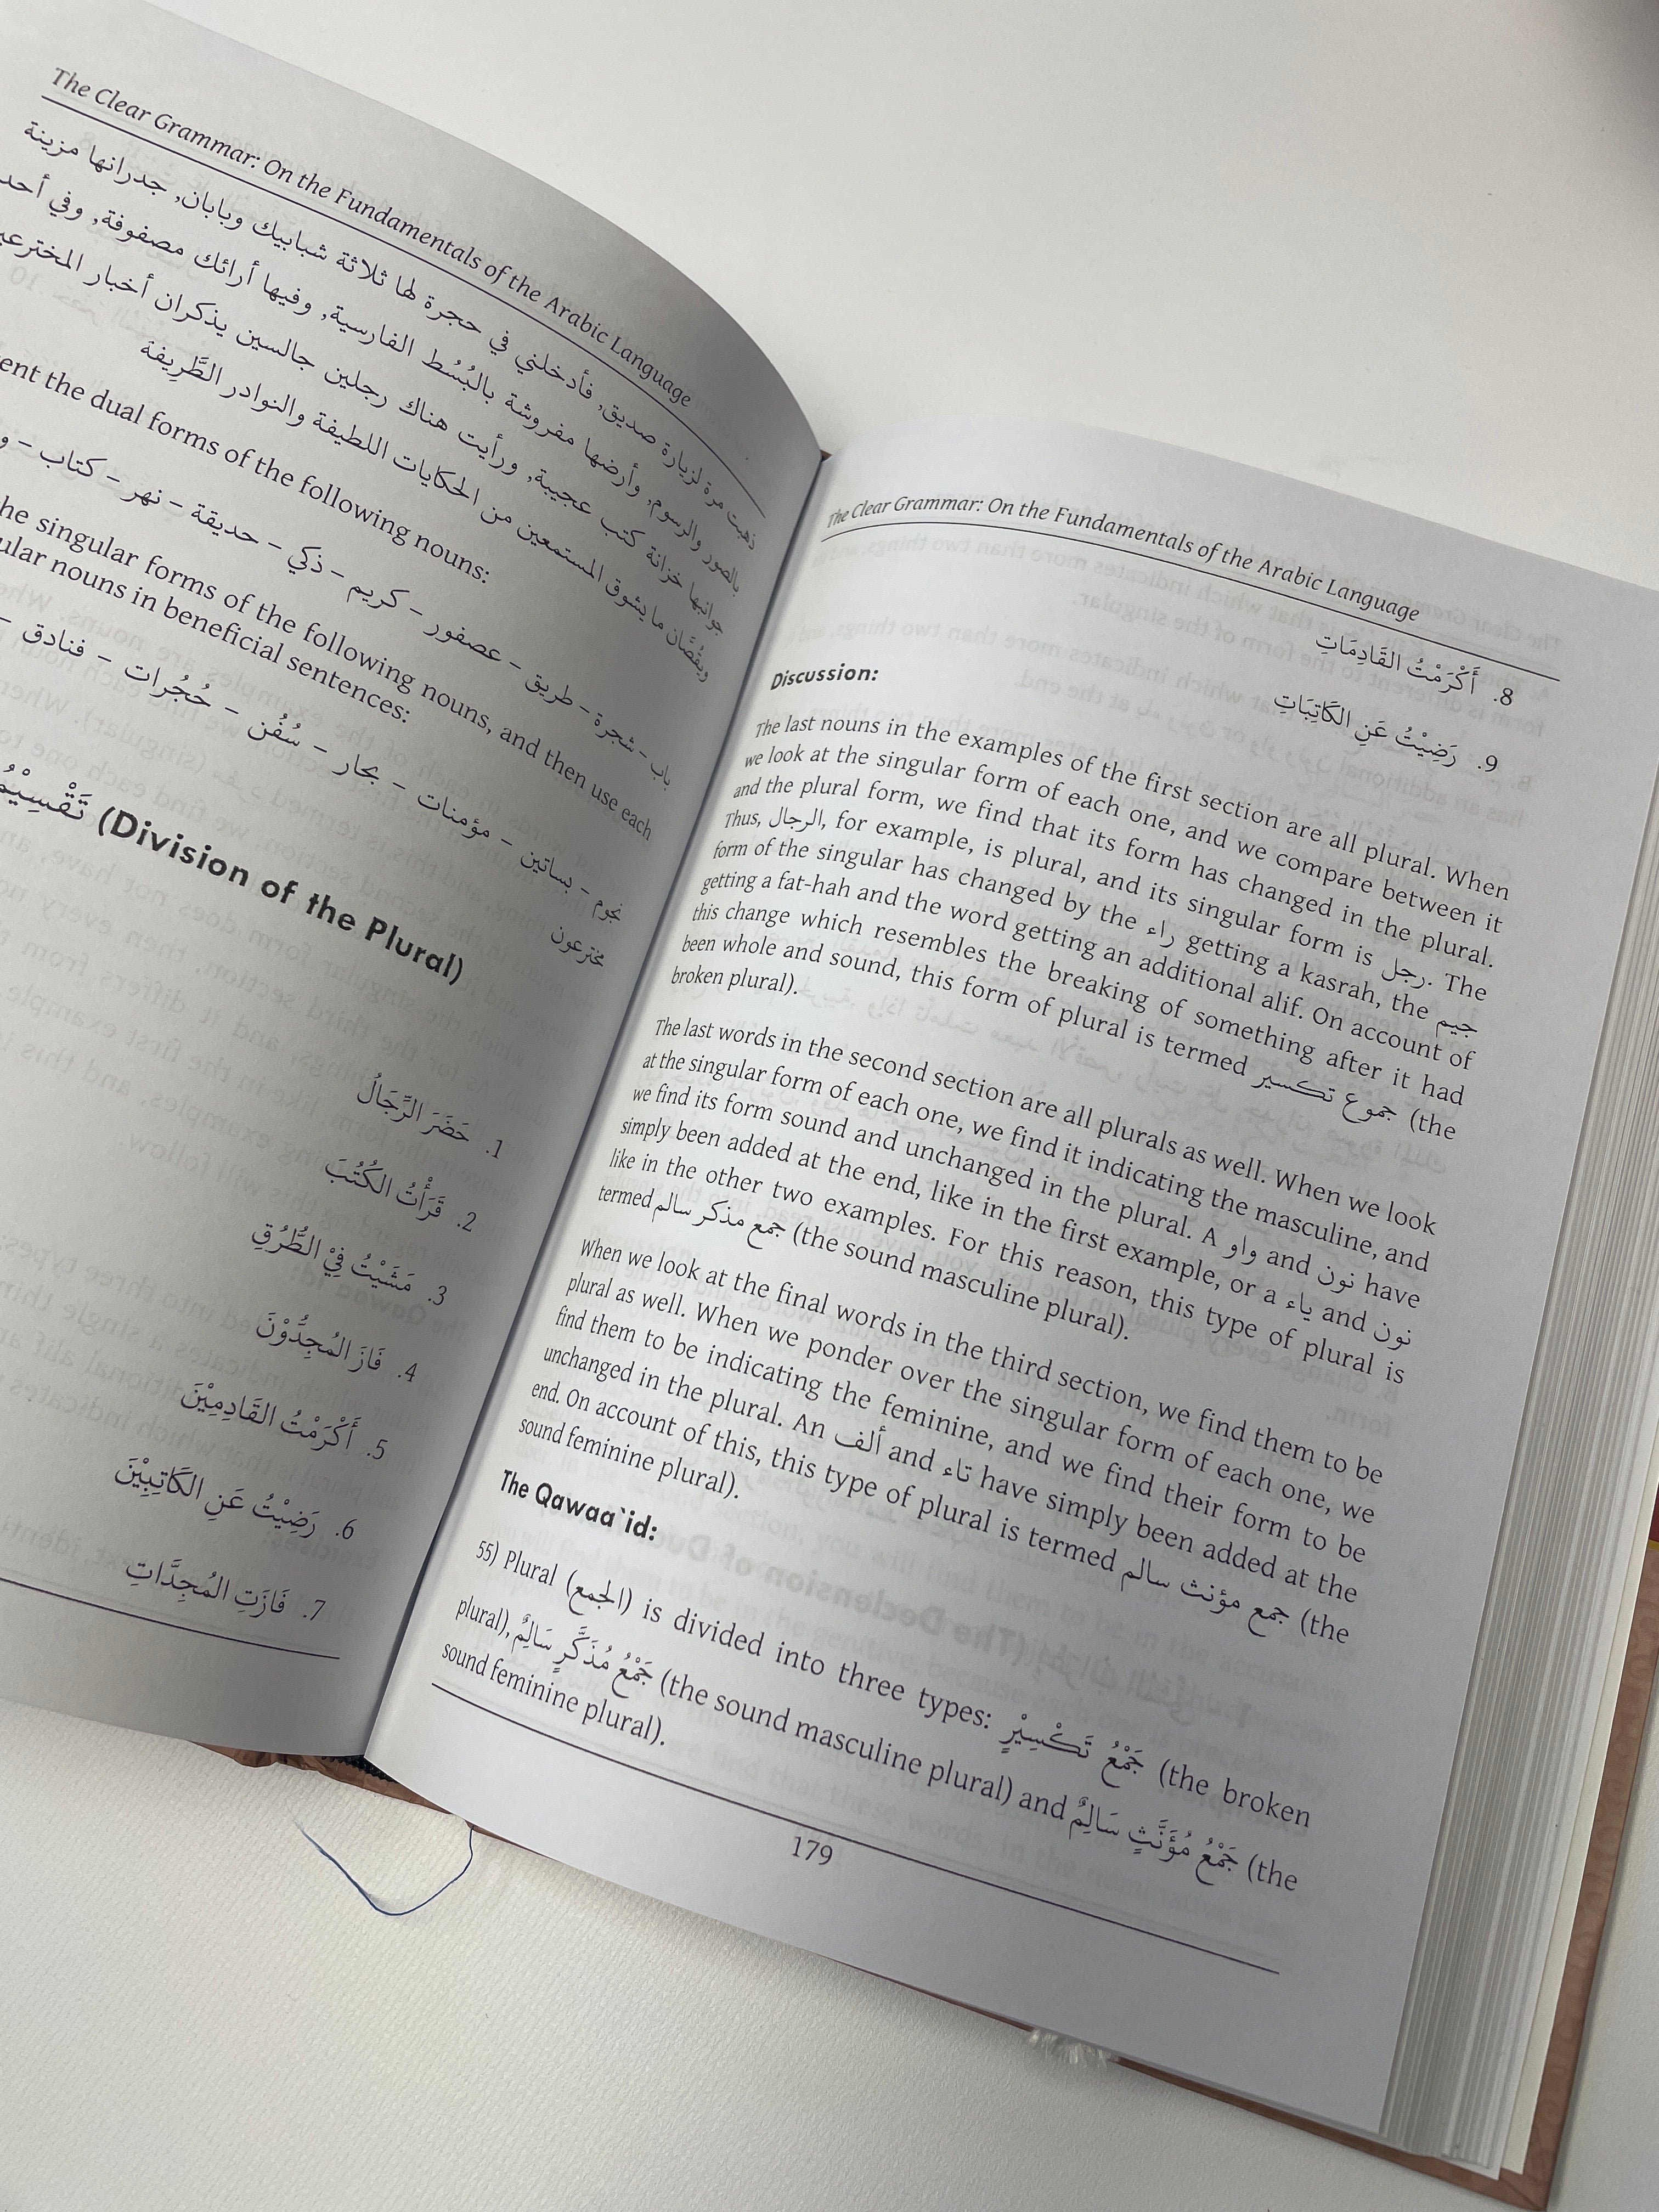 The Clear Grammar: On the Fundamentals of the Arabic Language
ذهبت مرة لزيارة صديق, فأدخلني في حجرة لها ثلاثة شبابيك وبابان, جدرانها مزينة
بالصور والرسوم, وأرضها مفروشة بالبُسُط الفارسية, وفيها أرائك مصفوفة, وفي
جوانبها خزانة كتب عجيبة, ورأيت هناك رجلين جالسين يذكران أخبار
ويقُصَّان ما يشوق المستمعين من الحكايات اللطيفة والنوادر الظَّرِيفة
the dual forms of the following nouns:
باب - شجرة - طريق - عصفور - كريم - ذكي - حديقة - نهر - كتاب -
singular forms of the following nouns, and then use each
nouns in beneficial sentences:
نجوم - بساتين - مؤمنات - بحار - سُفُن - حُجُرات - فنادق -
مخترعون
(Division of the Plural)
1. حَضَرَ الرِّجَالُ
2. قَرَأْتُ الكُتُبَ
3. مَشَيْتُ فِيْ الطُّرُقِ
4. فَازَ المُجِدُّوْنَ
5. أَكْرَمْتُ القَادِمِيْنَ
6. رَضِيْتُ عَنِ الكَاتِبِيْنَ
7. فَازَتِ المُجِدَّاتِ
The Clear Grammar: On the Fundamentals of the Arabic Language
8. أَكْرَمْتُ القَادِمَاتِ
9. رَضِيْتُ عَنِ الكَاتِبَاتِ
Discussion:
The last nouns in the examples of the first section are all plural. When
we look at the singular form of each one, and we compare between it
and the plural form, we find that its form has changed in the plural.
Thus, الرجال, for example, is plural, and its singular form is رجل. The
form of the singular has changed by the راء getting a kasrah, the جيم
getting a fat-hah and the word getting an additional alif. On account of
this change which resembles the breaking of something after it had
been whole and sound, this form of plural is termed جموع تكسير (the
broken plural).
The last words in the second section are all plurals as well. When we look
at the singular form of each one, we find it indicating the masculine, and
we find its form sound and unchanged in the plural. A واو and نون have
simply been added at the end, like in the first example, or a ياء and نون
like in the other two examples. For this reason, this type of plural is
termed جمع مذكر سالم (the sound masculine plural).
When we look at the final words in the third section, we find them to be
plural as well. When we ponder over the singular form of each one, we
find them to be indicating the feminine, and we find their form to be
unchanged in the plural. An ألف and تاء have simply been added at the
end. On account of this, this type of plural is termed جمع مؤنث سالم (the
sound feminine plural).
The Qawaa`id:
55) Plural (الجمع) is divided into three types: جَمْعُ تَكْسِيْرٍ (the broken
plural), جَمْعُ مُذَكَّرٍ سَالِمٌ (the sound masculine plural) and جَمْعُ مُؤَنَّثٍ سَالِمٌ (the
sound feminine plural).
179